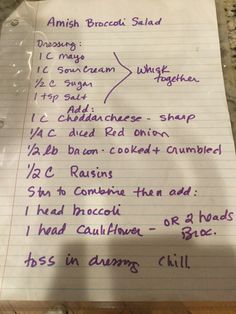 Amish Broccoli Salad
Dressing:
1 C mayo
1 C Sour Cream
1/2 C Sugar
1 tsp Salt
Whisk together
Add:
1 C Cheddar cheese - sharp
1/4 C diced Red Onion
1/2 lb bacon - cooked + crumbled
1/2 C Raisins
Stir to Combine then add:
1 head broccoli
1 head Cauliflower - OR 2 heads Broc.
toss in dressing Chill.